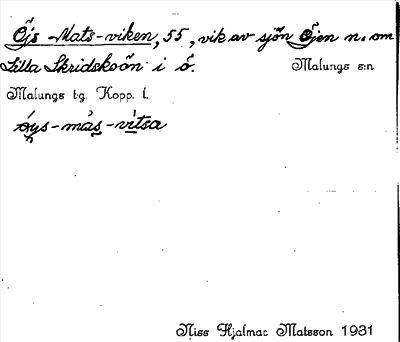 Öjs-Mats-viken, 55, vik av sjön Öjen n. om
Lilla Skridskoön i ö.
Malungs s:n
Malungs tg. Kopp. l.
óys-más-vìtsa
Niss Hjalmar Matsson 1931